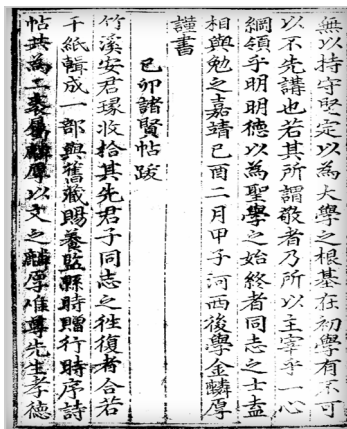 無以持守堅定以為大學之根基在初學有不可
以不先講也若其所謂敬者乃所以主宰乎一心
綱領乎明明德以為聖學之始終者同志之士盍
相與勉之嘉靖己酉二月甲子河西後學金麟厚
謹書
己卯諸賢帖跋
竹溪安君瑑收拾其先君子同志之往復者合若
千紙輯成一部與舊藏賜養監縣時贈行時序詩
帖共為二袠屬麟厚以文之麟厚堆尊先生孝德